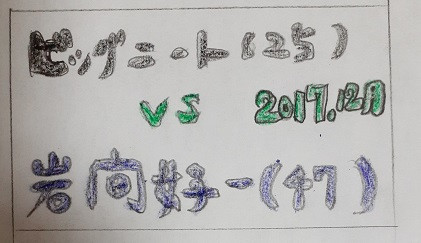 ビッグニート(25)
VS 2017.12月
岩向好一(47)